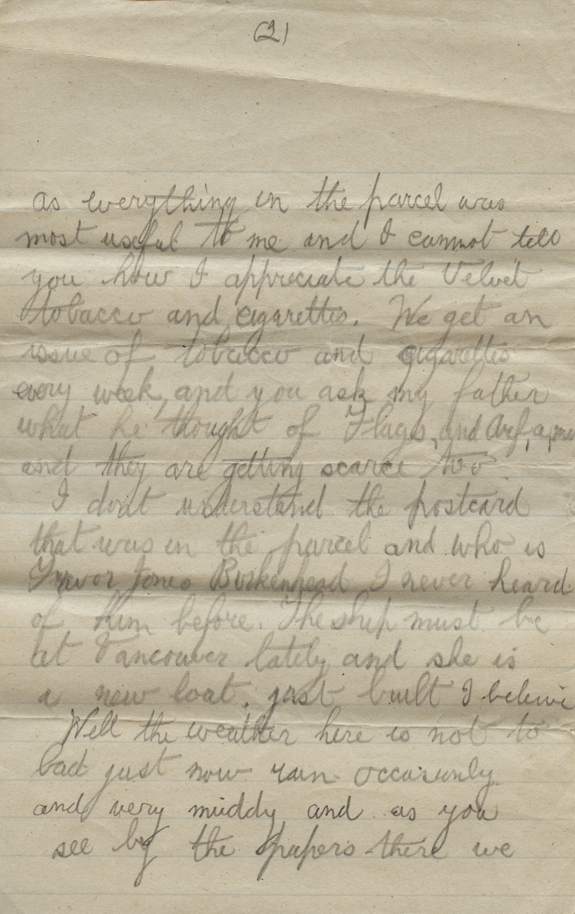 (2)
as everything in the parcel was
most useful to me and I cannot tell
you how I appreciate the Velvet
tobacco and cigarettes. We get an
issue of tobacco and cigarettes
every week, and you ask my father
what he thought of Flags, and
and they are getting scarce too.
I dont understand the postcard
that was in the parcel and who is
Trevor Jones Birkenhead I never heard
of him before. The ship must be
at Vancouver lately and she is
a new boat, just built I beleive
Well the weather here is not to
bad just now rain occasionly
and very muddy and as you
see by the papers there we